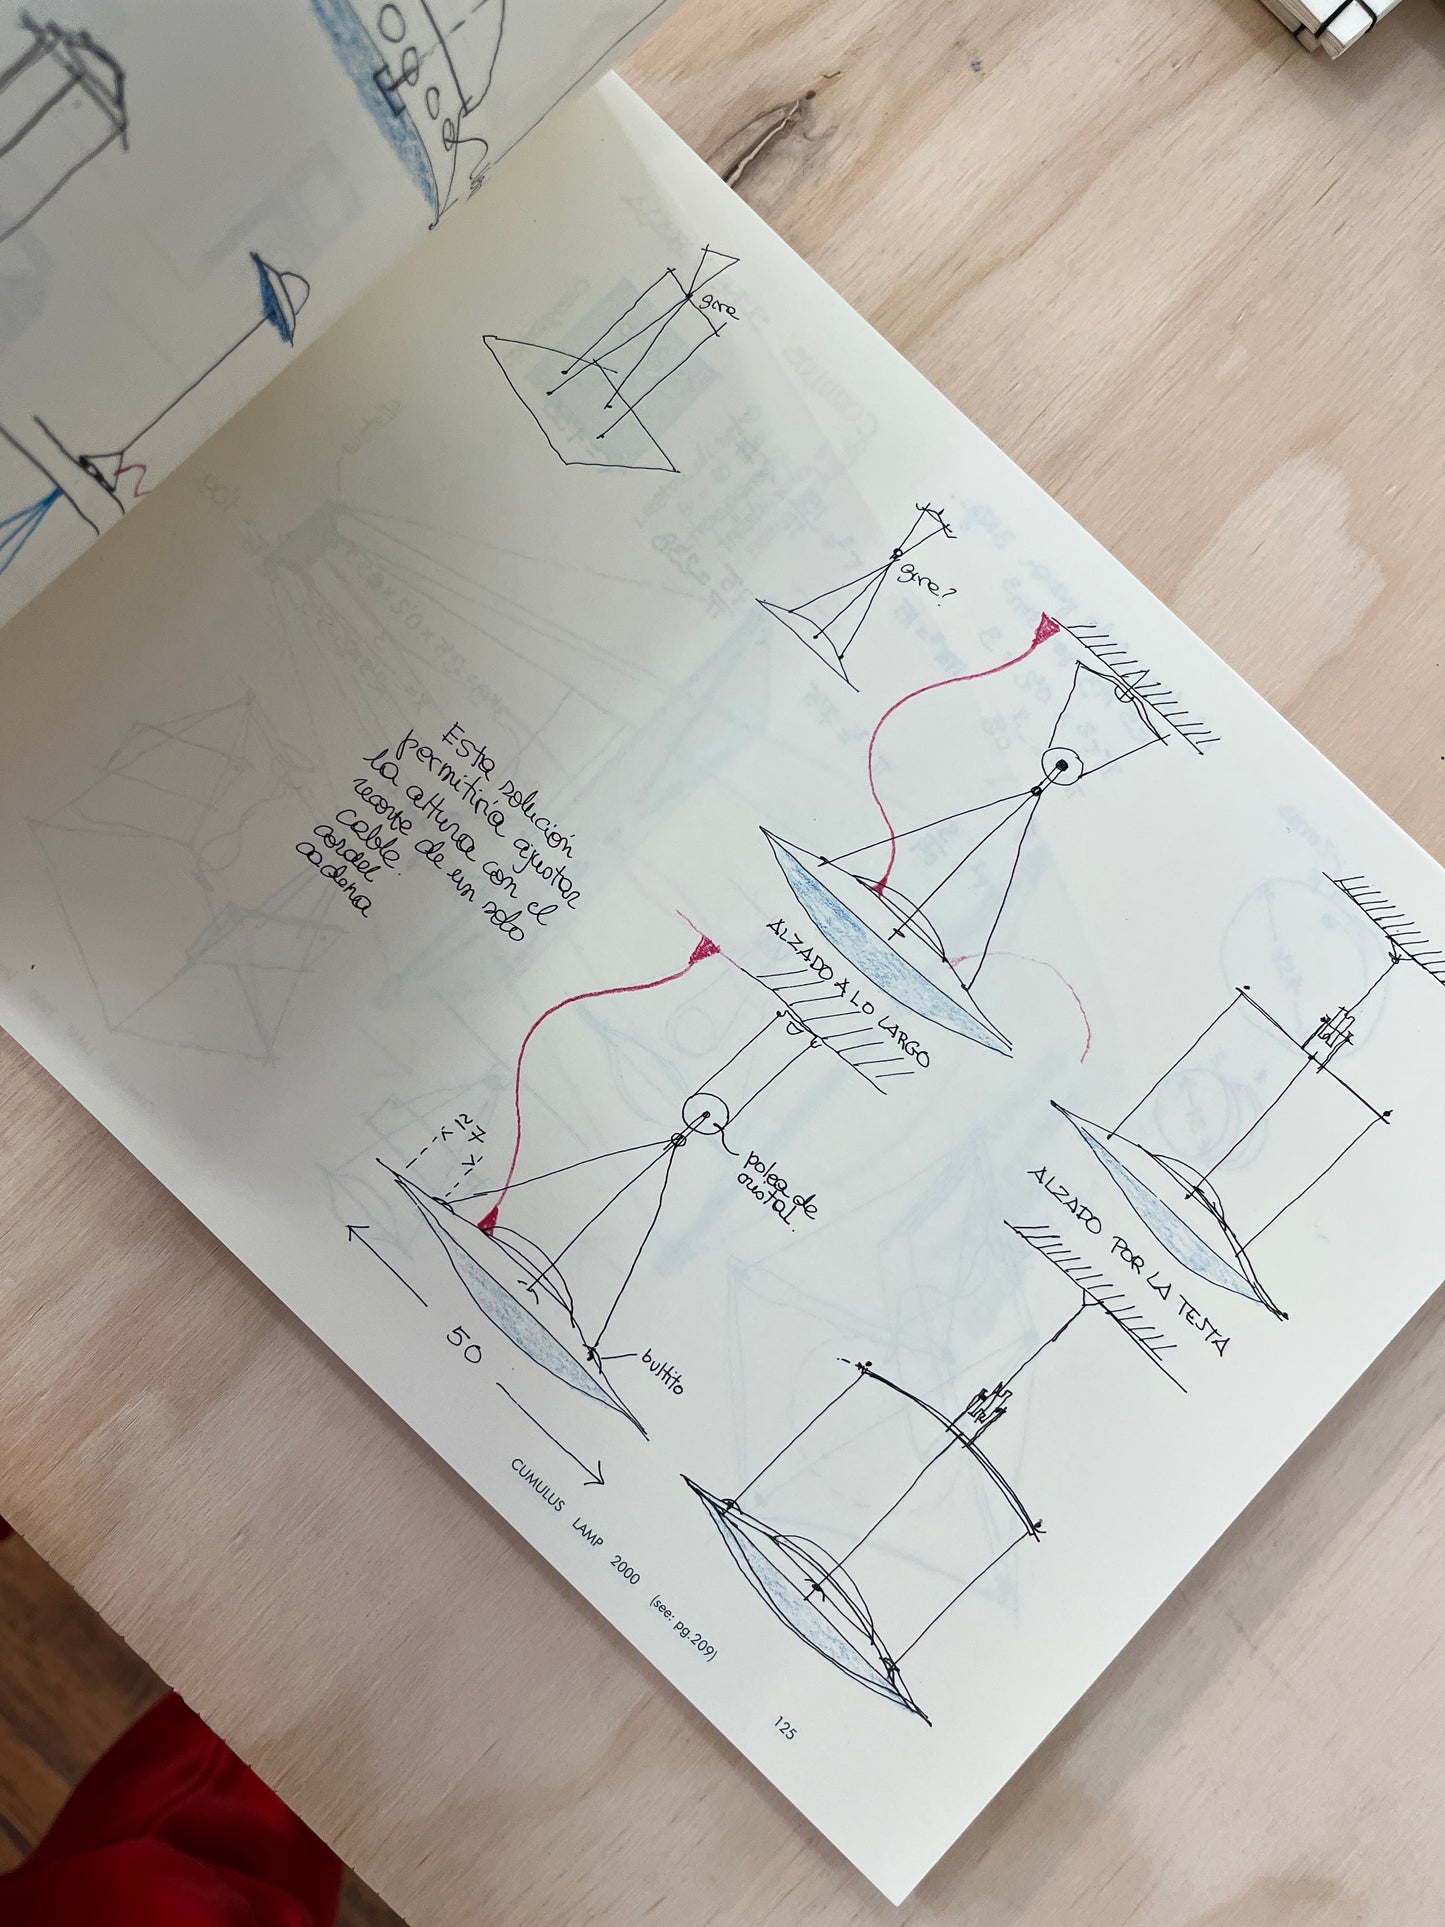 gira
gira?
Esta solución
permitiría ajustar
la altura con el
recorte de un solo
cable.
cordel
cadena
ALZADO A LO LARGO
≈7
polea de
cristal.
ALZADO POR LA TESTA
50
bultito
CUMULUS LAMP 2000 (see: pg.209)
125